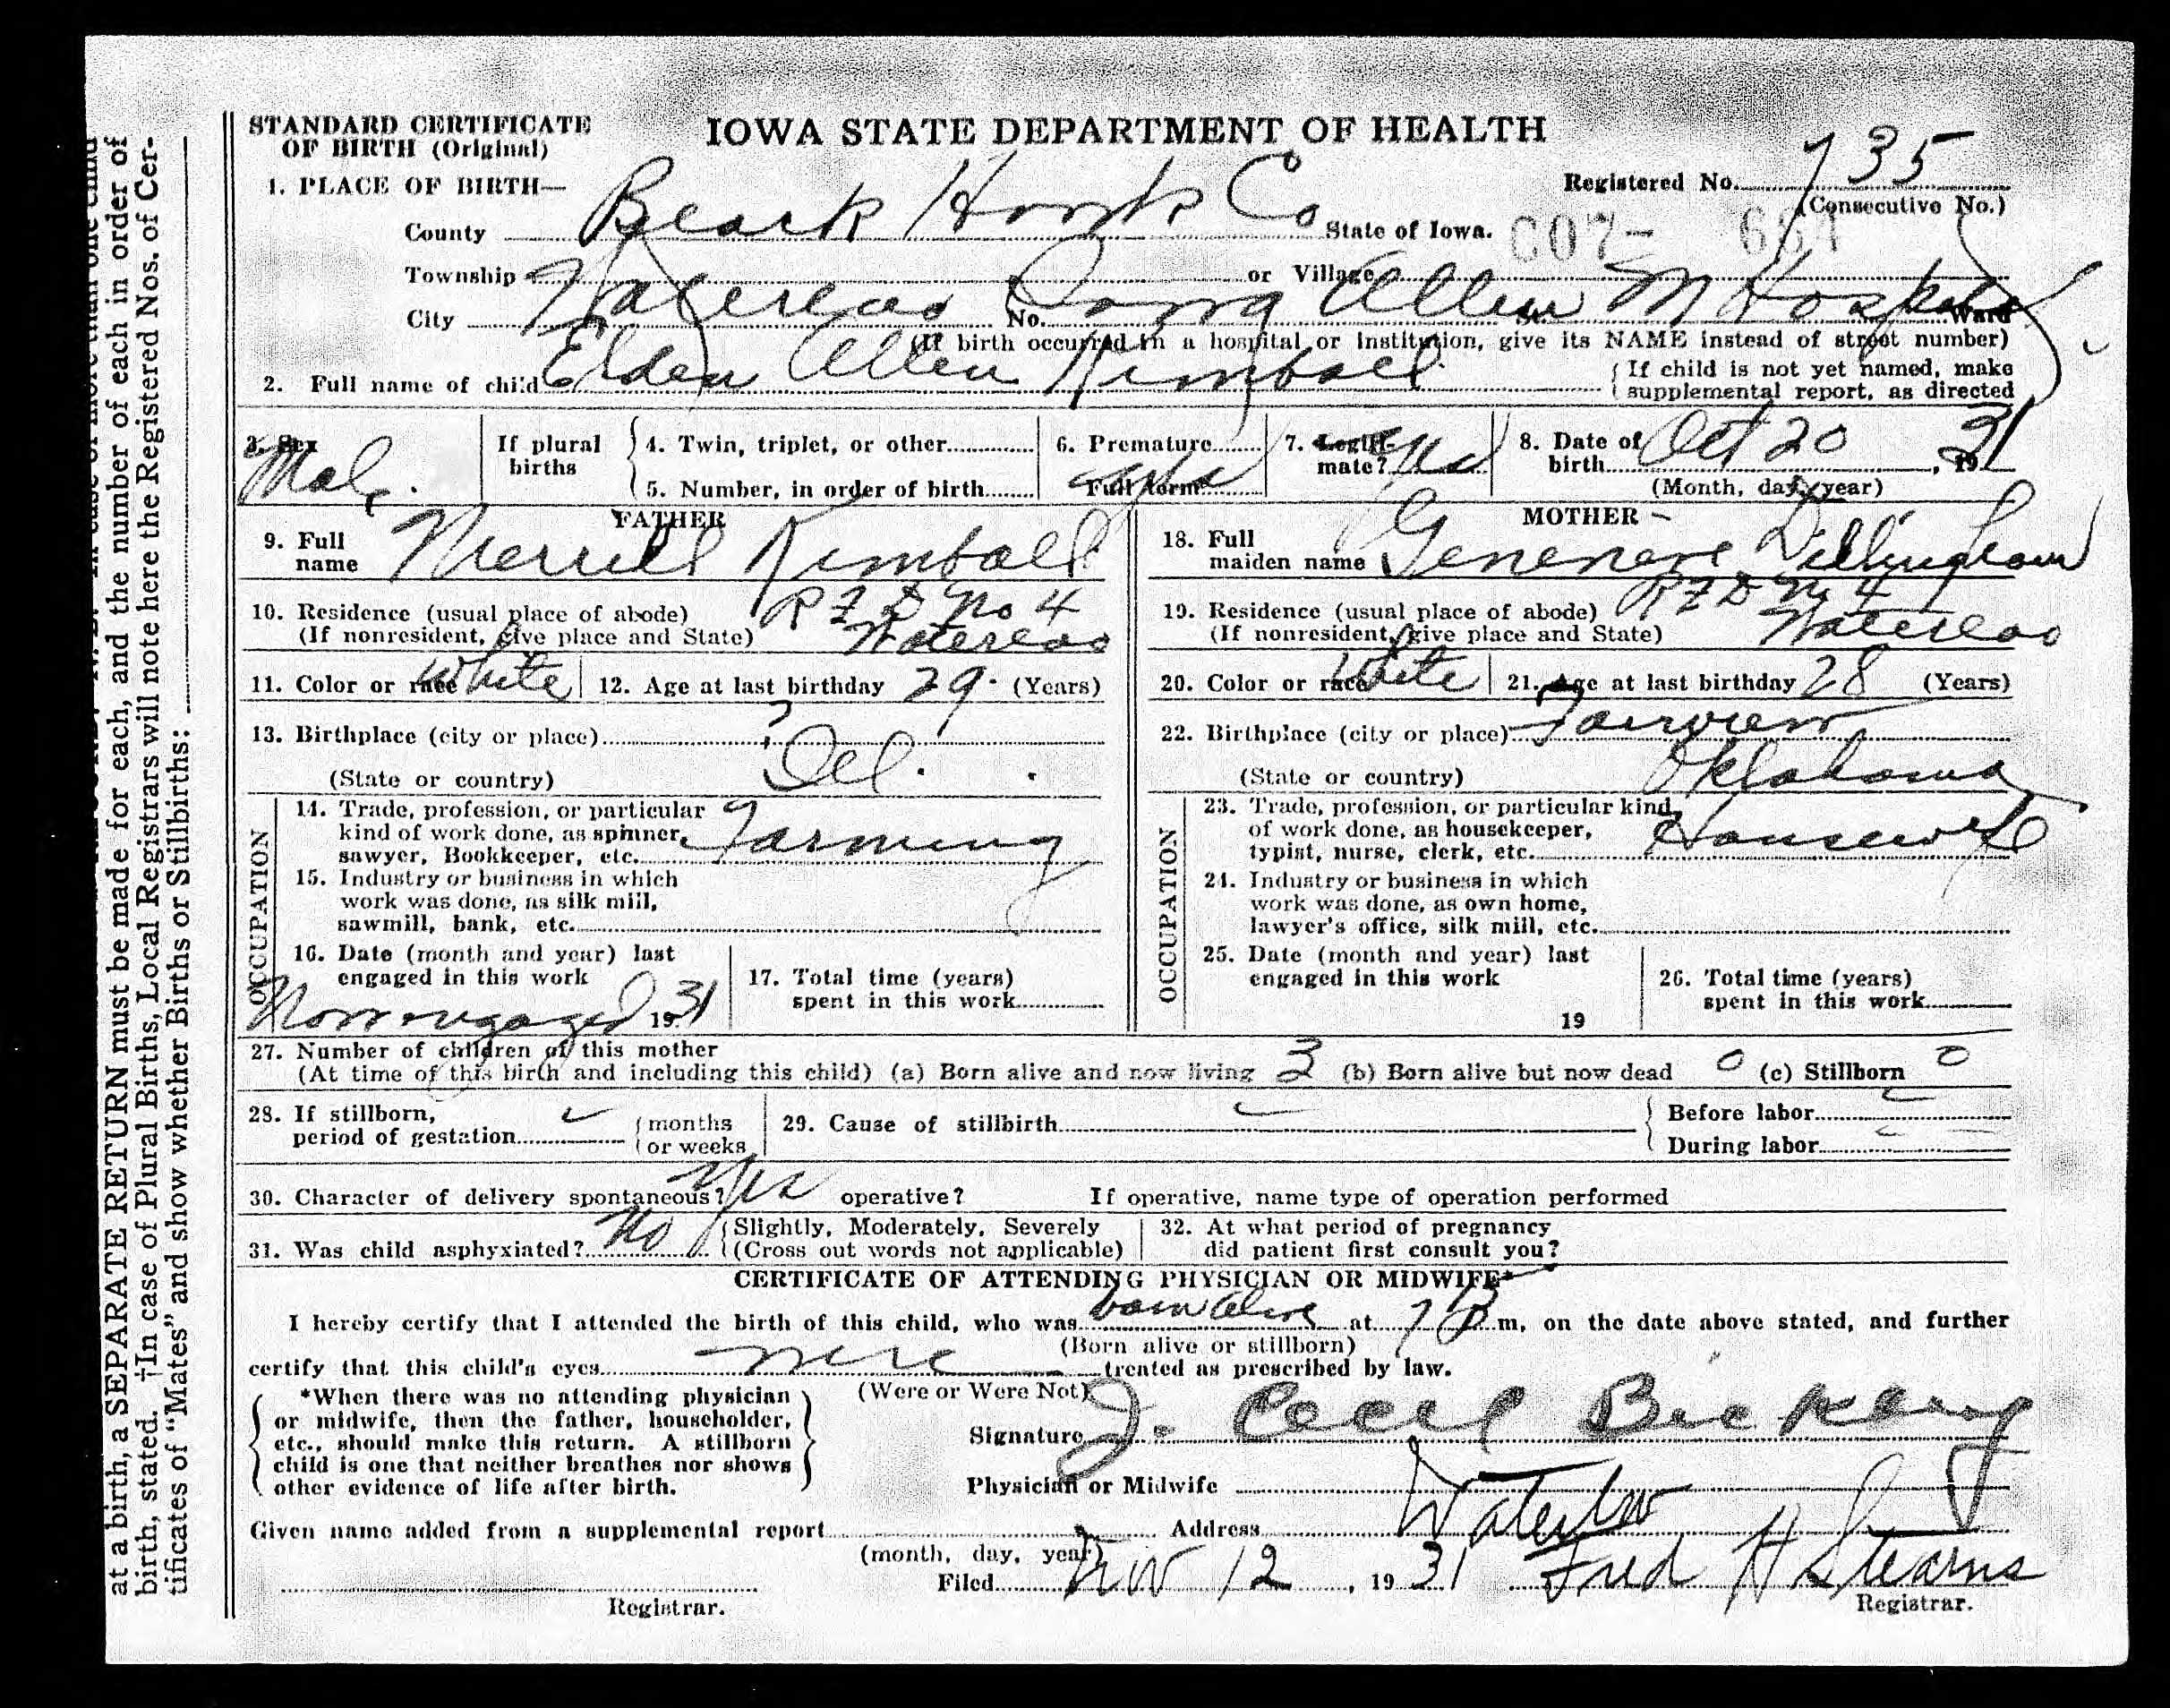 STANDARD CERTIFICATE
OF BIRTH (Original)
IOWA STATE DEPARTMENT OF HEALTH
1. PLACE OF BIRTH—
Registered No. 735
(Consecutive No.)
County Black Hawk Co State of Iowa. C07-
Township or Village
City Waterloo Iowa No. Allen M Hospital St. Ward
(If birth occurred in a hospital or institution, give its NAME instead of street number)
2. Full name of child Elden Allen Kimball
{ If child is not yet named, make
supplemental report, as directed
3. Sex Male.
If plural births
4. Twin, triplet, or other
5. Number, in order of birth
6. Premature
Full term yes
7. Legiti-
mate? Yes
8. Date of
birth Oct 20, 1931
(Month, day, year)
FATHER
9. Full
name Merrill Kimball
10. Residence (usual place of abode) R F D No 4
(If nonresident, give place and State) Waterloo
11. Color or race White
12. Age at last birthday 29. (Years)
13. Birthplace (city or place) ?
(State or country) Ill.
OCCUPATION
14. Trade, profession, or particular
kind of work done, as spinner,
sawyer, Bookkeeper, etc. Farming
15. Industry or business in which
work was done, as silk mill,
sawmill, bank, etc.
16. Date (month and year) last
engaged in this work
Now engaged 1931
17. Total time (years)
spent in this work
MOTHER
18. Full
maiden name Genevieve Dillingham
19. Residence (usual place of abode) R F D No 4
(If nonresident, give place and State) Waterloo
20. Color or race White
21. Age at last birthday 28 (Years)
22. Birthplace (city or place) Fairview
(State or country) Oklahoma
OCCUPATION
23. Trade, profession, or particular kind
of work done, as housekeeper,
typist, nurse, clerk, etc. Housewife
24. Industry or business in which
work was done, as own home,
lawyer's office, silk mill, etc.
25. Date (month and year) last
engaged in this work
19
26. Total time (years)
spent in this work
27. Number of children of this mother
(At time of this birth and including this child) (a) Born alive and now living 3 (b) Born alive but now dead 0 (c) Stillborn 0
28. If stillborn,
period of gestation { months
or weeks
29. Cause of stillbirth
{ Before labor
During labor
30. Character of delivery spontaneous? Yes operative? If operative, name type of operation performed
31. Was child asphyxiated? No { Slightly, Moderately, Severely
(Cross out words not applicable)
32. At what period of pregnancy
did patient first consult you?
CERTIFICATE OF ATTENDING PHYSICIAN OR MIDWIFE*
I hereby certify that I attended the birth of this child, who was born alive at 7 P m, on the date above stated, and further
(Born alive or stillborn)
certify that this child's eyes were treated as prescribed by law.
(Were or Were Not)
*When there was no attending physician
or midwife, then the father, householder,
etc., should make this return. A stillborn
child is one that neither breathes nor shows
other evidence of life after birth.
Signature J. Cecil Bickley
Physician or Midwife
Given name added from a supplemental report
Address Waterloo
(month, day, year)
Filed Nov 12, 1931 Fred H Stearns
Registrar. Registrar.
at a birth, a SEPARATE RETURN must be made for each, and the number of each in order of
birth, stated. †In case of Plural Births, Local Registrars will note here the Registered Nos. of Cer-
tificates of "Mates" and show whether Births or Stillbirths: